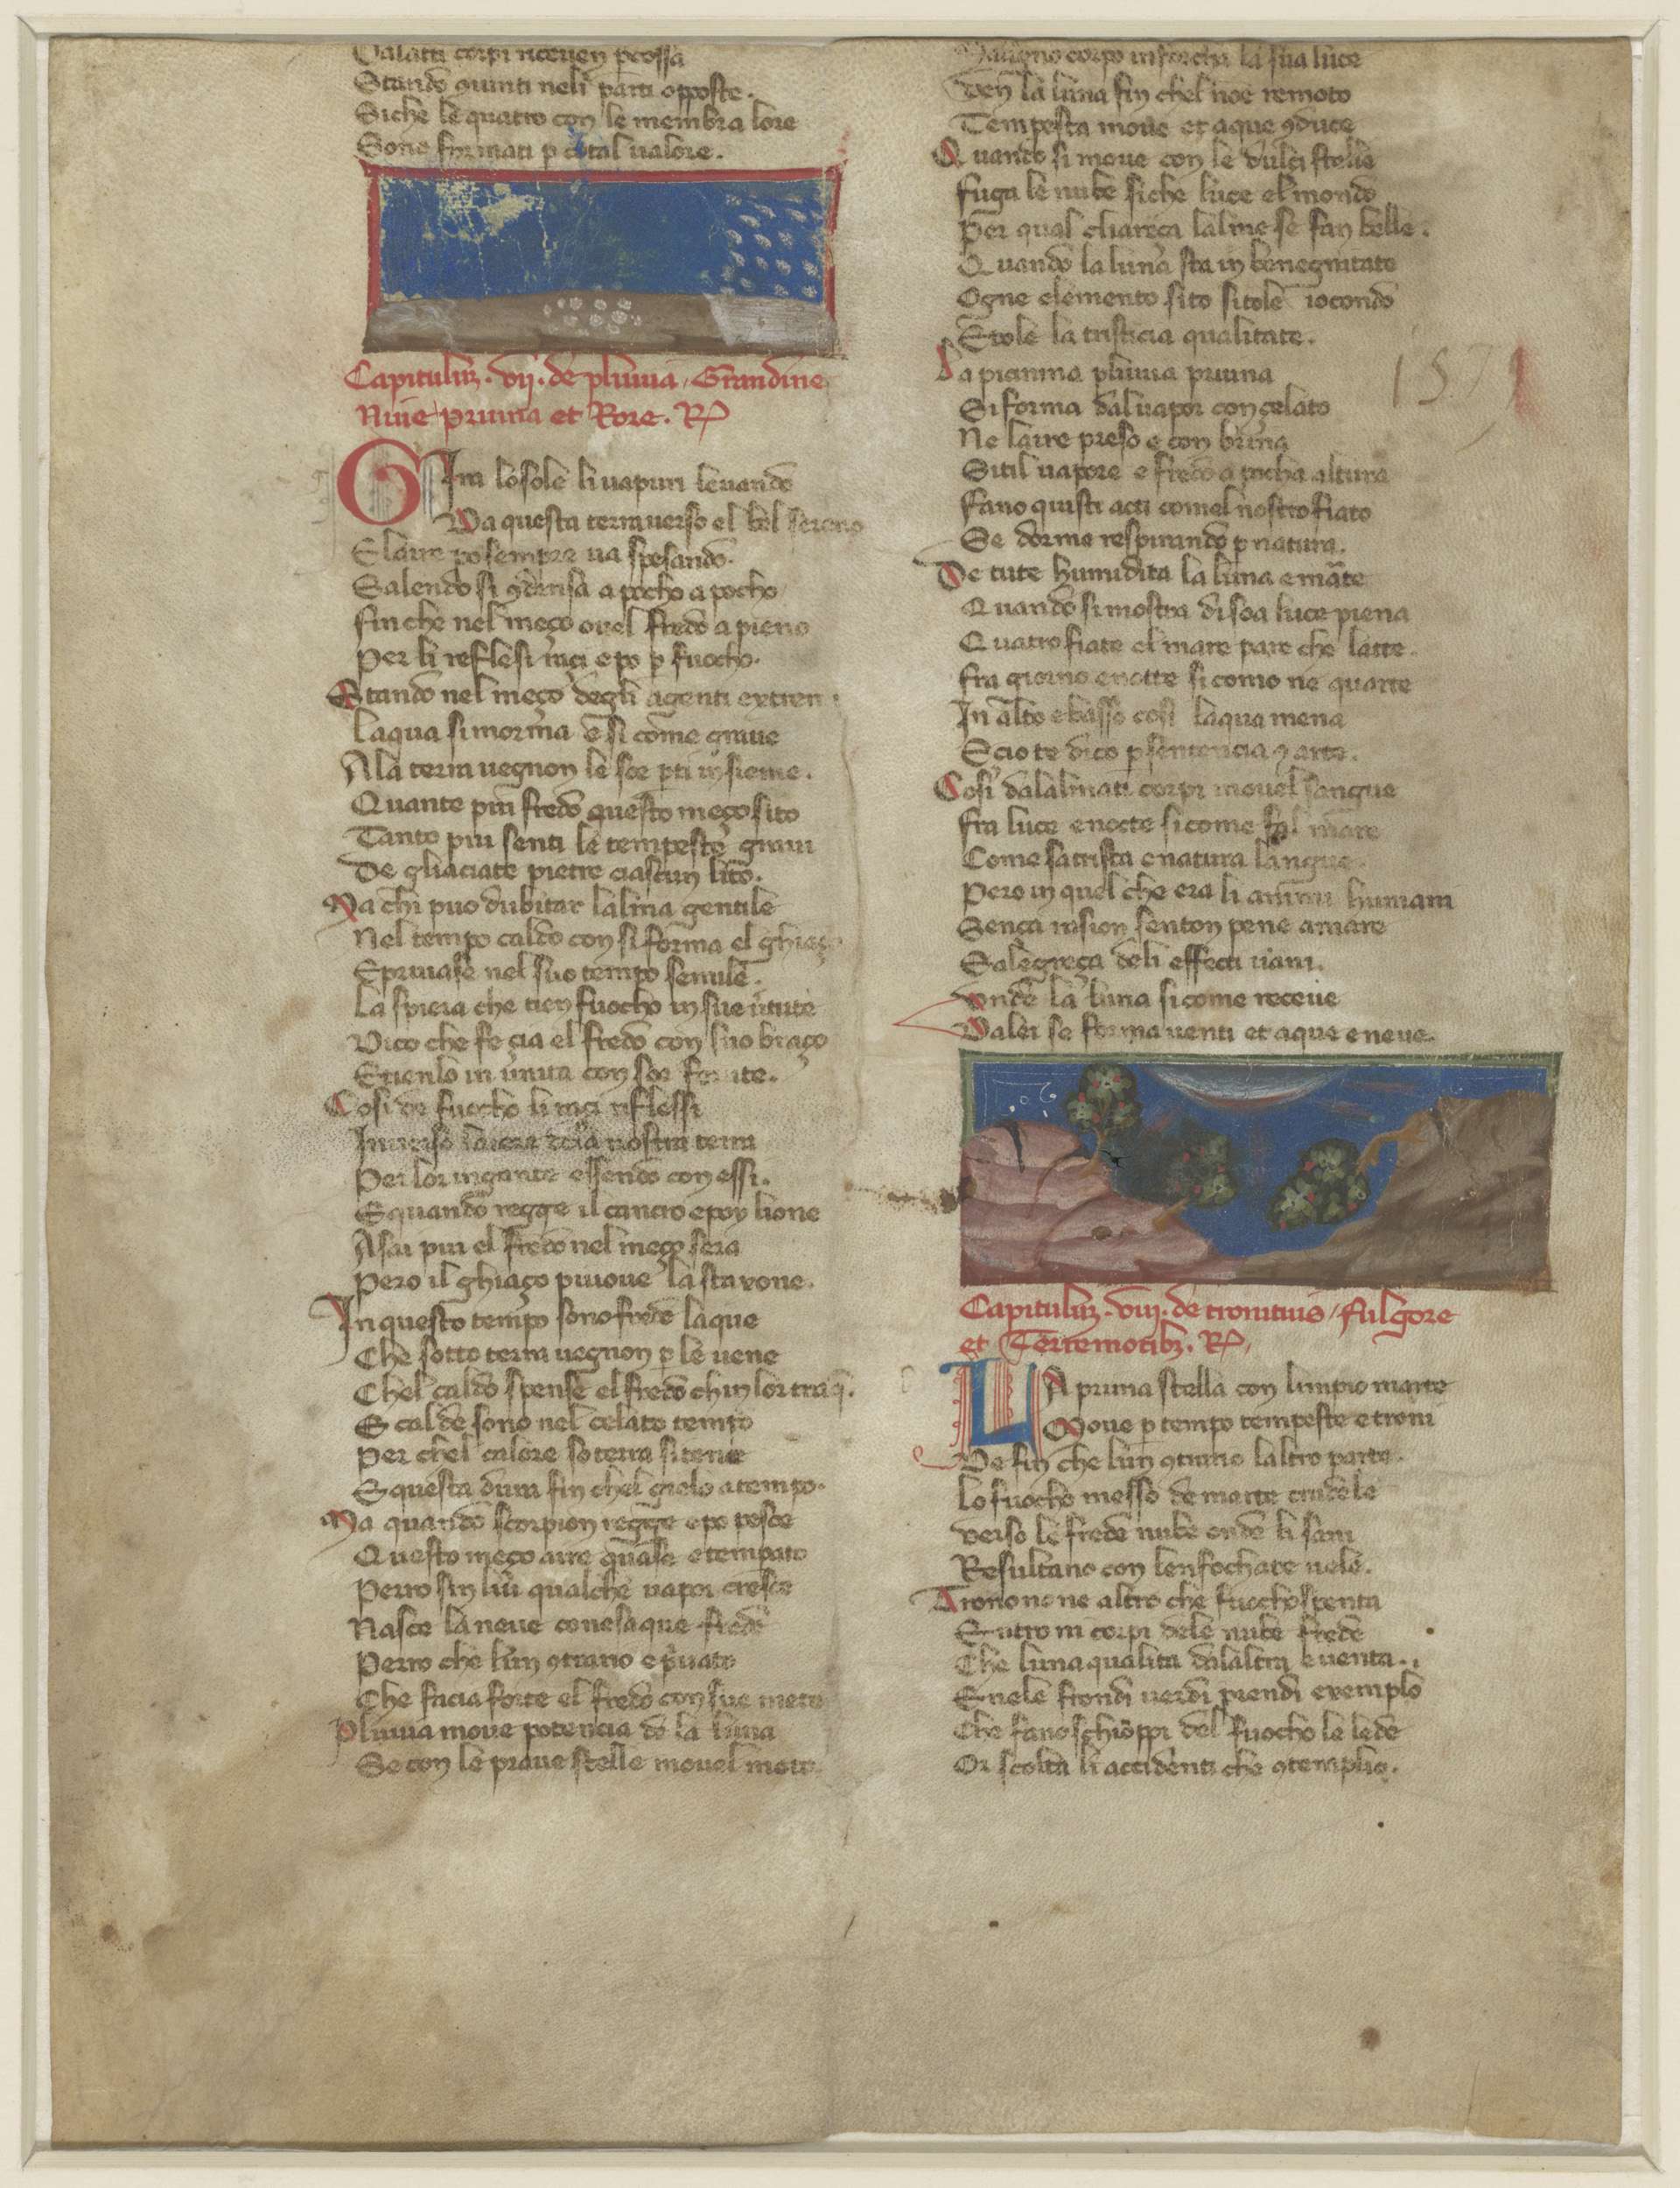 Dalatri corpi riceven pcossa
Stando giunti neli parti opposte.
Siche le quatro con le membra lore
Sono formati p cotal ualore.
Capitulum. vij. de pluuia, Grandine
Niue pruina et Rore. Rx
Gira lo sole li uapuri leuando
Da questa terra uerso el bel sereno
E laire po sempre ua spesando.
Salendo si 9densa a pocho a pocho
fin che nel meço ouel fredo a pieno
Per li reflesi raçi e po p fuocho.
Stando nel meço degli agenti extren
Laqua si inorma e si come graue
A la terra uegnon le soe pti insieme.
Quante piu fredo questo meço sito
Tanto piu senti le tempeste graui
De gliaciate pietre ciascun lito.
Ma chi puo dubitar lalma gentile
Nel tempo caldo con si forma el ghiaço
E priuase nel suo tempo senule.
La spiera che tien fuocho in sue uirtute
Dico che fe çia el fredo con suo braço
E tienlo in unita con soe
Cosi de fuocho li raçi riflessi
Inuerso laiera dela nostra terra
Per lor essendo con essi.
E quando regge il cancro e poy lione
Asai piu el fredo nel meço sera
Pero il ghiaço piuoue la staxone.
In questo tempo sono frede laque
Che sotto terra uegnon p le uene
Chel caldo spense el fredo chin lor traq.
E calde sono nel celato tempo
Per chel calore so terra si tene
E questa dura fin chel gielo a tempo.
Ma quando scorpion regge e po pesce
Questo meço aire quase e tempato
Perro sin lui qualche uapor cresce
Nasce la neue con esa que fredo
Perro che lun 9trario e puato
Che facia forte el fredo con sue mete
Pluuia moue potencia de la luna
Se con le praue stelle mouel moto.
Maligno corpo inforcha la sua luce
Ven la luna fin chel noe remoto
Tempesta moue et aque 9duce
Quando si moue con le dulci stelle
fuga le nube siche luce el mondo
Per qual chiareça lalme se fan belle.
Quando la luna sta in benegnitate
Ogne elemento sito si tole iocondo
E tole la tristicia qualitate.
La picinina pluuia pruina
Si forma dal uapor congelato
Ne laire preso e con brina
Sutil uapore e fredo a pocha altura
fano quisti acti comel nostro fiato
Se dorme respirando p natura.
De tute humidita la luna e mate
Quando si mostra di soa luce piena
Quatro fiate el mare pare che latte.
fra giorno e notte si como ne quarte
In alto e basso cosi laqua mena
E cio te dico p sentencia 9 arte.
Cosi dalalinati corpi mouel sangue
fra luce e nocte si come fal mare
Come satrista e natura langue
Pero in quel che era li animi humani
Sença uision senton pene amare
E alegreça deli effecti uani.
Onde la luna si come receue
Dalei se forma uenti et aque e neue.
157
Capitulum. viij. de tronituus, fulgore
et Terremotibz. Rx
La pruna stella con limpio marte
Moue p tempo tempeste e troni
De fin che lun 9trario laltro parte.
Lo fuocho messo de marte crudele
verso le frede nube onde li sani
Resultano con lenfochate uele.
Trono no ne altro che fuocho spenta
Entro ni corpi dele nube frede
Che luna qualita dalaltra e uenta.
E nele frondi uerdi prendi exemplo
Che fano schioppi del fuocho le lede
Or scolta li accidenti che 9templio.